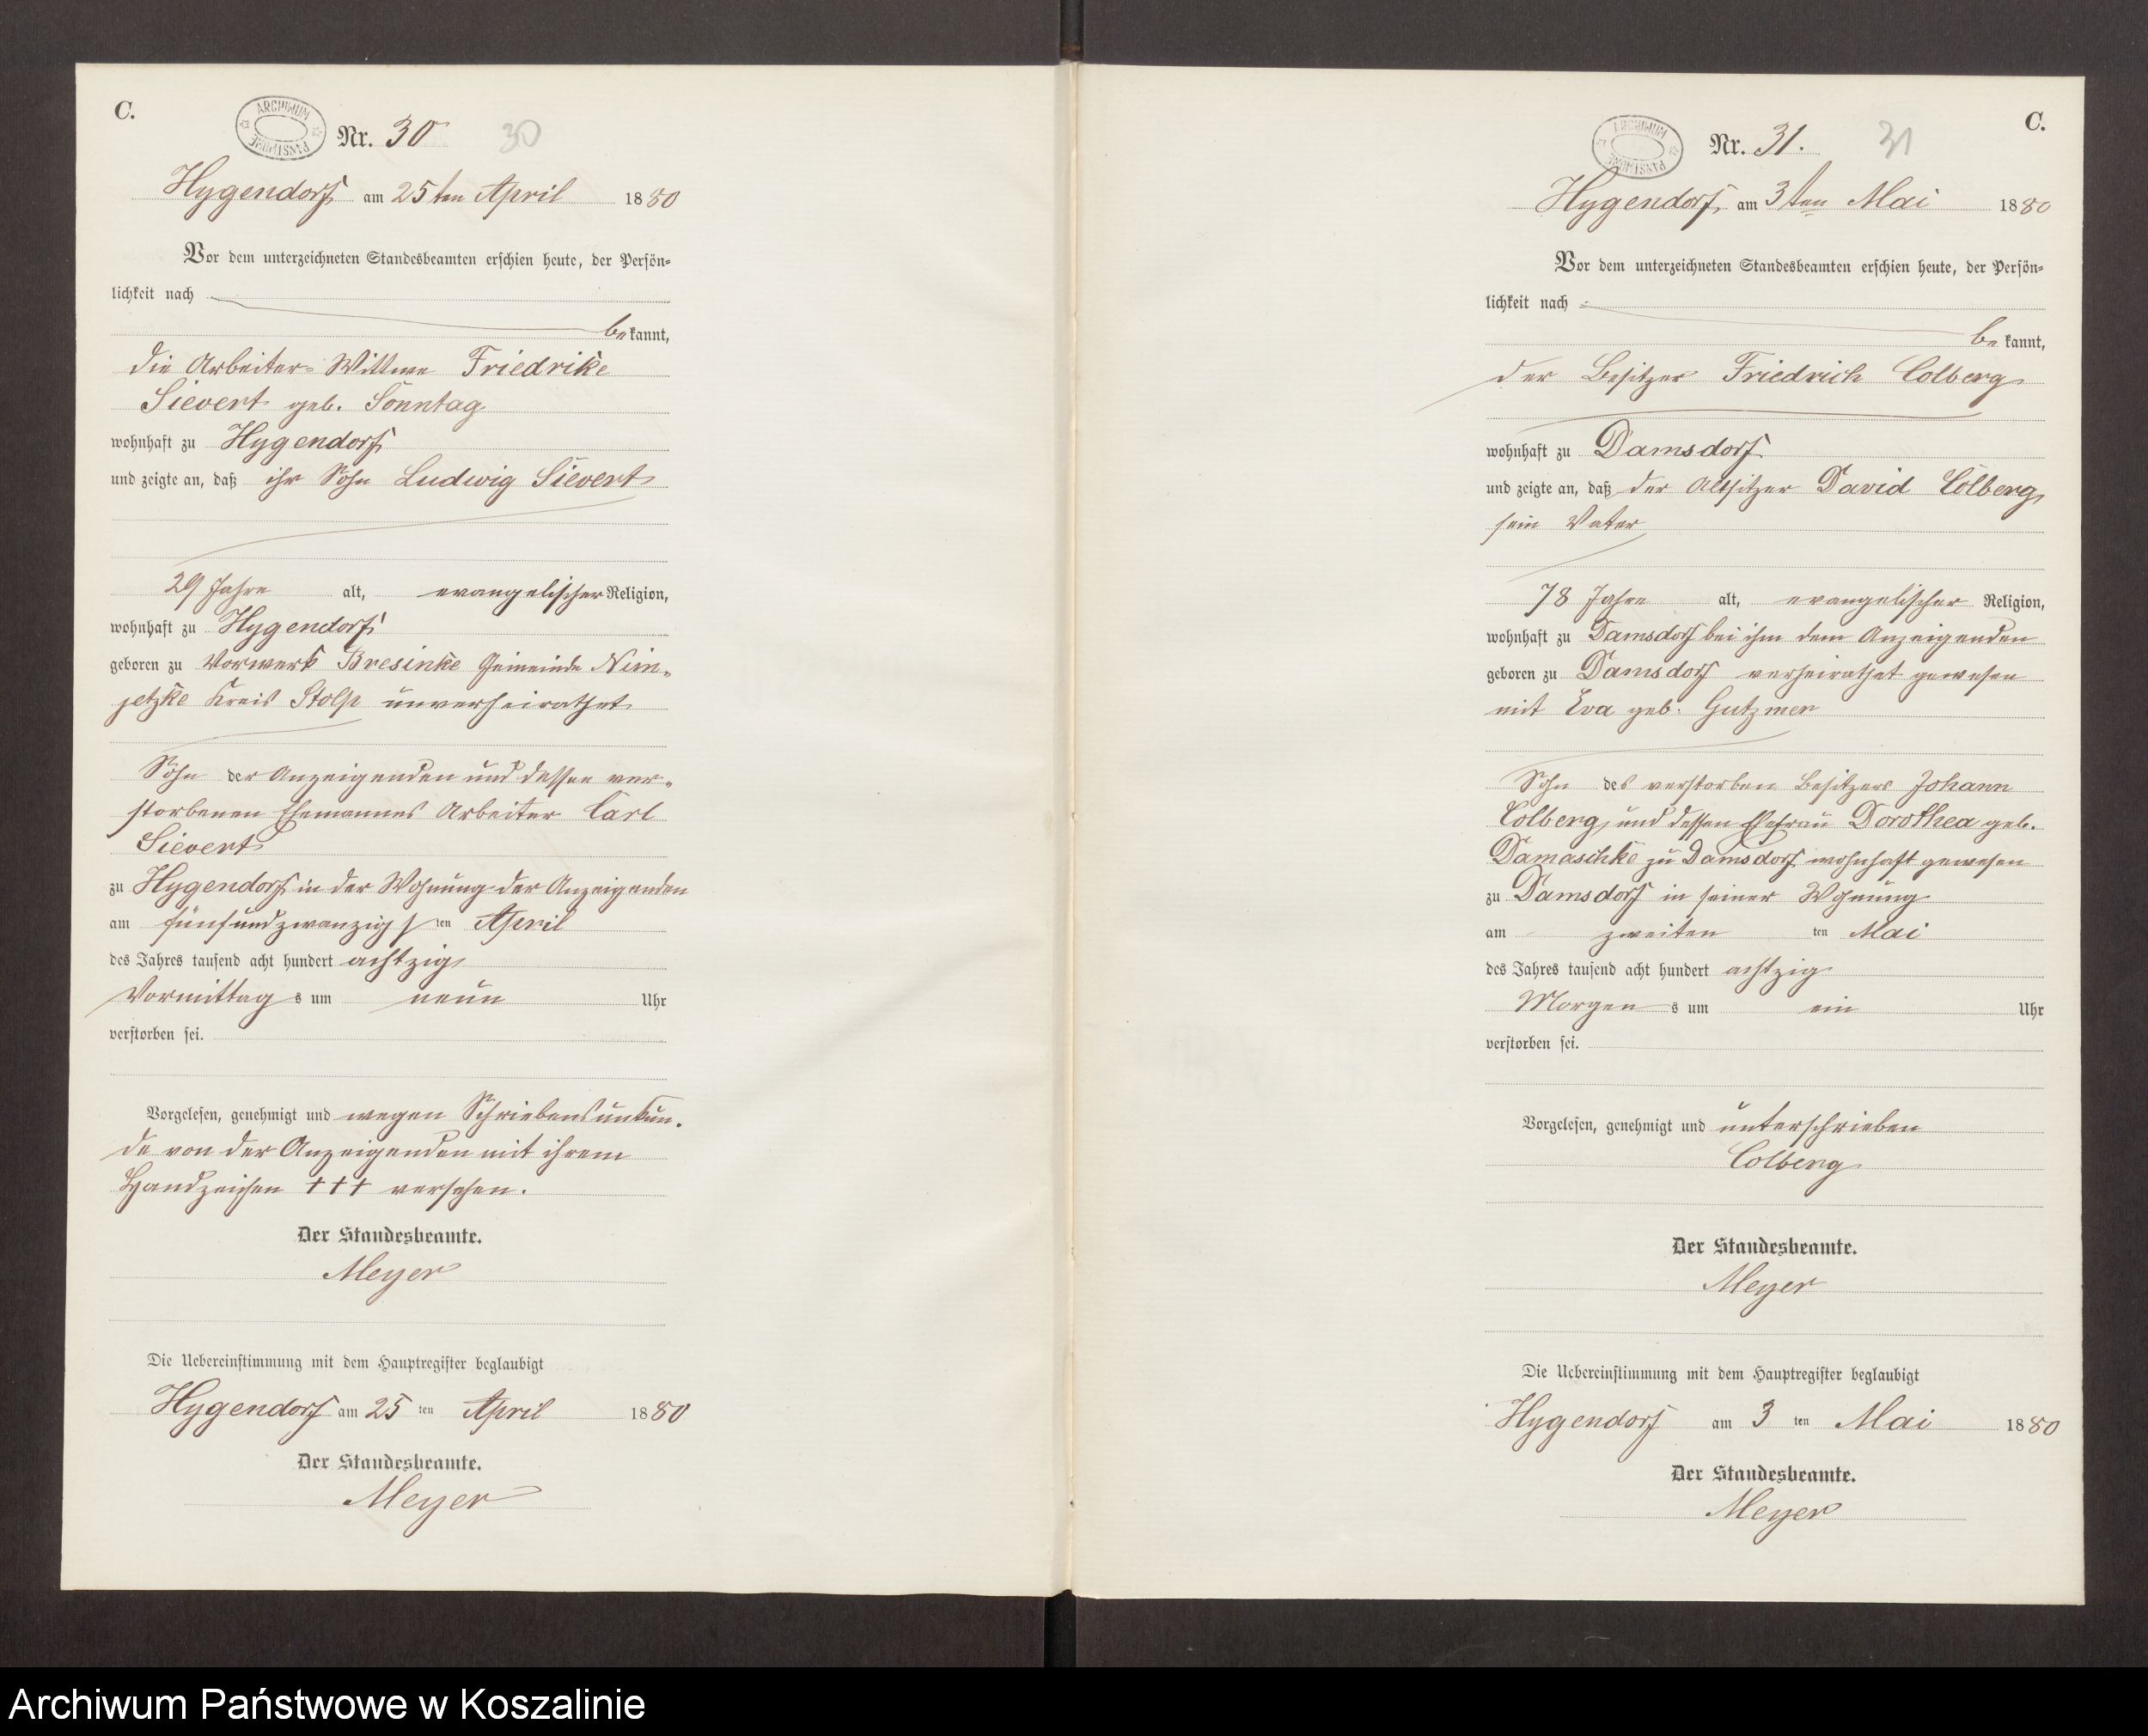 C.
ARCHIWUM PAŃSTWOWE
Nr. 30 30
Hygendorf am 25ten April 1880
Vor dem unterzeichneten Standesbeamten erschien heute, der Persön-
lichkeit nach
bekannt,
die Arbeiter-Wittwe Friedrike
Sievert geb. Sonntag
wohnhaft zu Hygendorf
und zeigte an, daß ihr Sohn Ludwig Sievert
29 Jahre alt, evangelischer Religion,
wohnhaft zu Hygendorf
geboren zu Vorwerk Bresinke Gemeinde Nim-
jetzke Kreis Stolp unverheirathet
Sohn der Anzeigenden und dessen ver-
storbenen Ehemannes Arbeiter Carl
Sievert
zu Hygendorf in der Wohnung der Anzeigenden
am fünfundzwanzigsten April
des Jahres tausend acht hundert achtzig
Vormittags um neun Uhr
verstorben sei.
Vorgelesen, genehmigt und wegen Schriebensunkun-
de von der Anzeigenden mit ihrem
Handzeichen +++ versehen.
Der Standesbeamte.
Meyer
Die Uebereinstimmung mit dem Hauptregister beglaubigt
Hygendorf am 25ten April 1880
Der Standesbeamte.
Meyer
C.
ARCHIWUM PAŃSTWOWE
Nr. 31. 31
Hygendorf, am 3ten Mai 1880
Vor dem unterzeichneten Standesbeamten erschien heute, der Persön-
lichkeit nach
bekannt,
der Besitzer Friedrich Colberg
wohnhaft zu Damsdorf
und zeigte an, daß der Altsitzer David Colberg,
sein Vater
78 Jahre alt, evangelischer Religion,
wohnhaft zu Damsdorf bei ihm dem Anzeigenden
geboren zu Damsdorf verheirathet gewesen
mit Eva geb. Gutzmer
Sohn des verstorben Besitzers Johann
Colberg, und dessen Ehefrau Dorothea geb.
Damaschke zu Damsdorf wohnhaft gewesen
zu Damsdorf in seiner Wohnung
am zweiten ten Mai
des Jahres tausend acht hundert achtzig
Morgens um ein Uhr
verstorben sei.
Vorgelesen, genehmigt und unterschrieben
Colberg
Der Standesbeamte.
Meyer
Die Uebereinstimmung mit dem Hauptregister beglaubigt
Hygendorf am 3ten Mai 1880
Der Standesbeamte.
Meyer
Archiwum Państwowe w Koszalinie